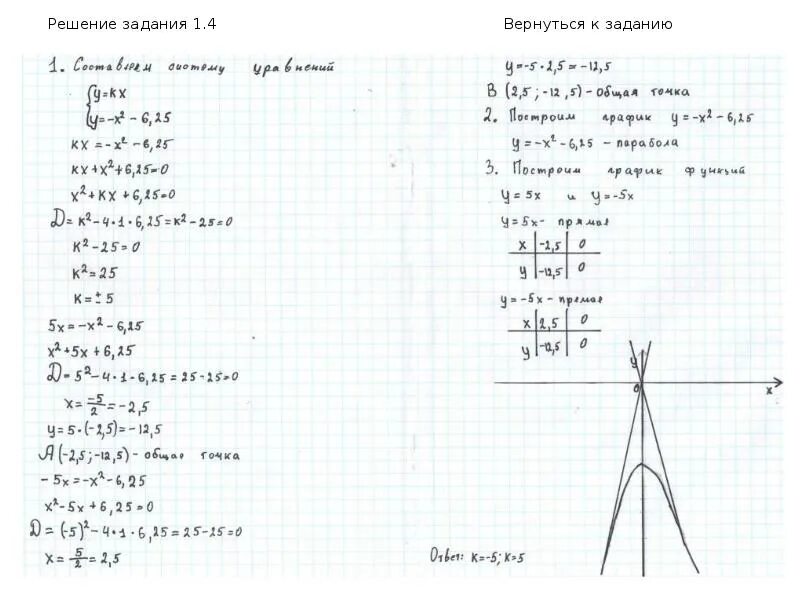 Решение задания 1.4
Вернуться к заданию
1. Составляем систему уравнений
y=kx
y=-x²-6,25
kx=-x²-6,25
kx+x²+6,25=0
x²+kx+6,25=0
D=k²-4·1·6,25=k²-25=0
k²-25=0
k²=25
k=±5
5x=-x²-6,25
x²+5x+6,25
D=5²-4·1·6,25=25-25=0
x=-5/2=-2,5
y=5·(-2,5)=-12,5
A(-2,5;-12,5)-общая точка
-5x=-x²-6,25
x²-5x+6,25=0
D=(-5)²-4·1·6,25=25-25=0
x=5/2=2,5
y=-5·2,5=-12,5
B(2,5;-12,5)-общая точка
2. Построим график y=-x²-6,25
y=-x²-6,25 - парабола
3. Построим график функций
y=5x и y=-5x
y=5x- прямая
x -2,5 0
y -12,5 0
y=-5x- прямая
x 2,5 0
y -12,5 0
y
0
x
Ответ: k=-5; k=5